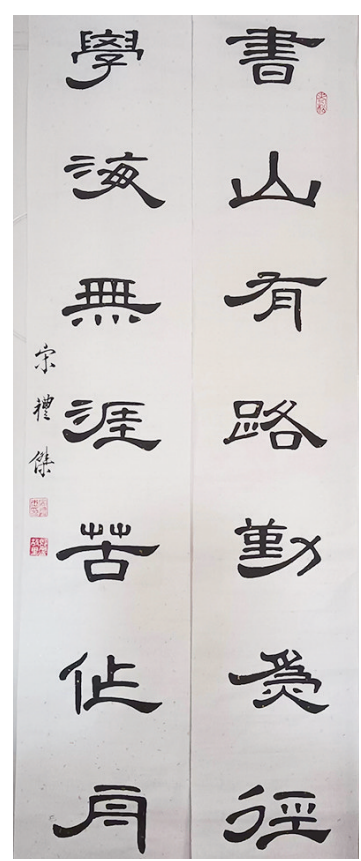 書山有路勤為徑
學海無涯苦作舟
宋禮傑